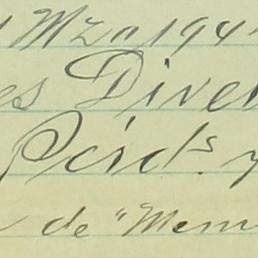 Mzo 194
es Diver
Pérds. y
de "Mem